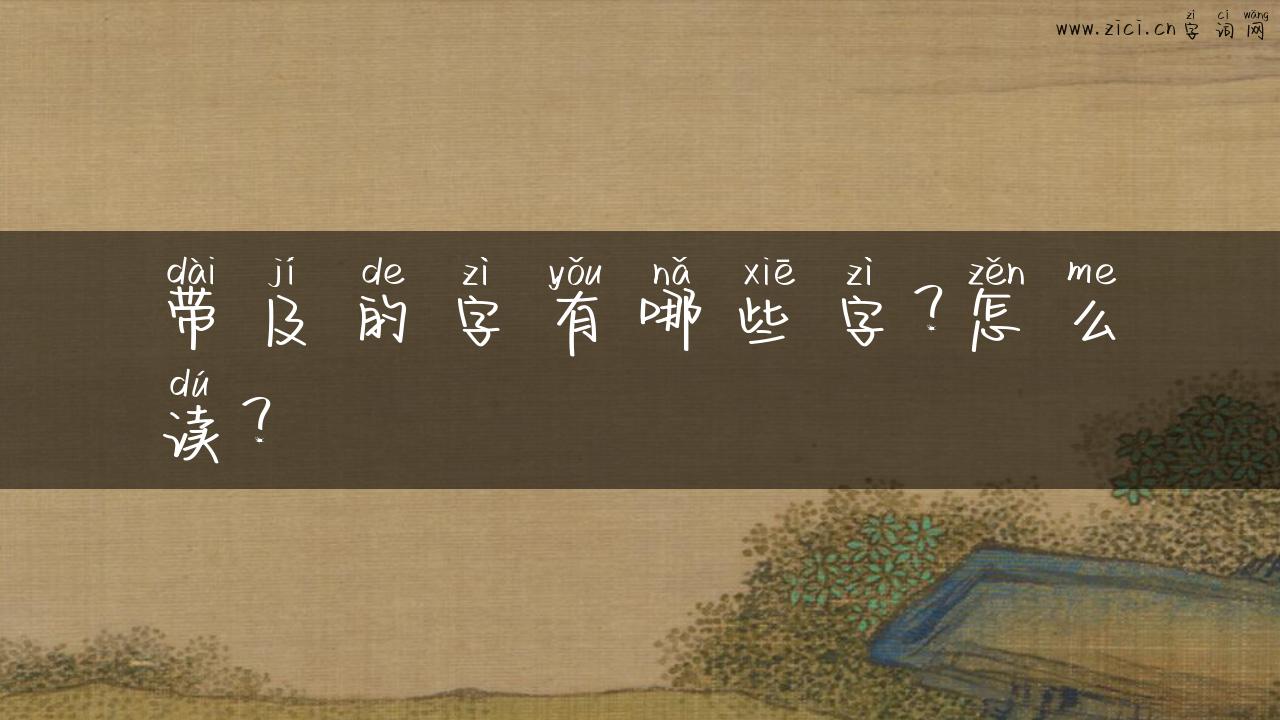 zì cí wǎng
www.zici.cn 字 词 网
dài jí de zì yǒu nǎ xiē zì zěn me
带 及 的 字 有 哪 些 字 ? 怎 么
dú
读 ?